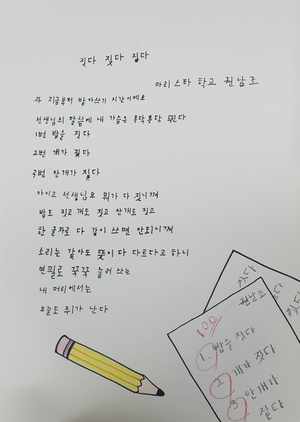 짓다 짖다 짙다
마리스타 학교 권남조
자 지금부터 받아쓰기 시간이예요
선생님의 말씀에 내 가슴은 후닥후닥 뛴다
1번 밥을 짓다
2번 개가 짖다
3번 안개가 짙다
아이고 선생님요 뭐가 다 짓니껴
밥도 짓고 개도 짓고 안개도 짓고
한 글자로 다 같이 쓰면 안되니껴
소리는 같아도 뜻이 다 다르다고 하니
연필로 꾹꾹 눌러 쓰는
내 머리에서는
오늘도 쥐가 난다
짖다
권남조
100
1. 밥을 짓다
2. 개가 짖다
3. 안개가
짙다